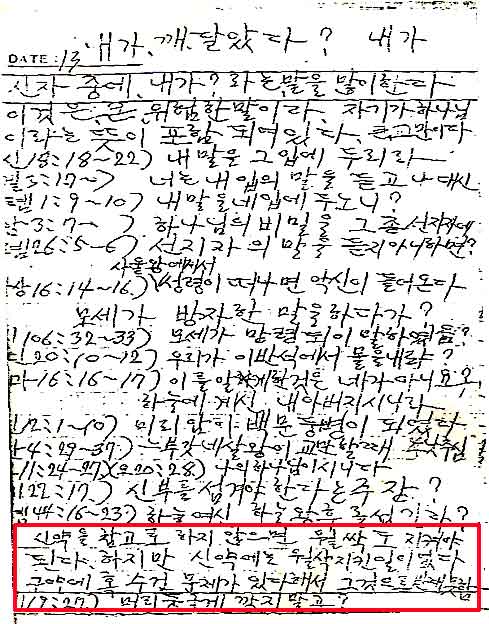 내가, 깨달았다? 내가
DATE: 13
신자 중에, 내가? 라는 말을 많이한다
이것은 큰 위험한 말이라, 자기가 하나님
이라는 뜻이 포함 되어있다, 큰 교만이다
신18:18~22) 내 말을 그 입에 두리라
겔3:17~) 너는 내 입의 말을 듣고 나 대신
렘1:9~10) 내 말을 네 입에 두노니?
암3:7~ ) 하나님의 비밀을 그 종 선지자에
렘26:5~6) 선지자의 말을 듣지 아니하면?
사울왕에게서
상16:14~16) 성령이 떠나면 악신이 들어온다
모세가 방자한 말을 하다가?
106:32~33) 모세가 망령되이 말하였음?
민20:10~12) 우리가 이 반석에서 물을 내랴?
마16:16~17) 이를 알게한것은 네가 아니요?
하늘에 계신 내 아버지시니라
12:1~10) 미리 암이
되었다
4:29~37) 느부갓네살왕이 교만할때
11:24~27)(요20:28) 나의 하나님이시니다
22:17) 신부를 섬겨야 한다는 주장?
렘44:16~23) 하늘 여신 하늘 황후 섬기라?
신약을 참고로 하지 않으면 월삭 두 지켜야
되다. 하지만 신약에는 월삭 지킨 일이 없다
구약에 혹 수건 문제가 있다해서 그것으로
19:27) 머리 둥글게 깍지 말고?